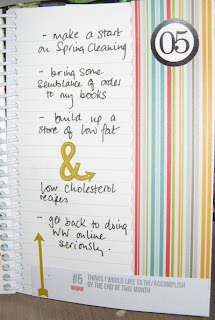 05
- make a start
on Spring Cleaning
- bring some
semblance of order
to my books
- build up a
store of low fat
&
low cholesterol
recipes
- get back to doing
WW online
seriously.
#5 THINGS I WOULD LIKE TO DO/ACCOMPLISH
BY THE END OF THIS MONTH